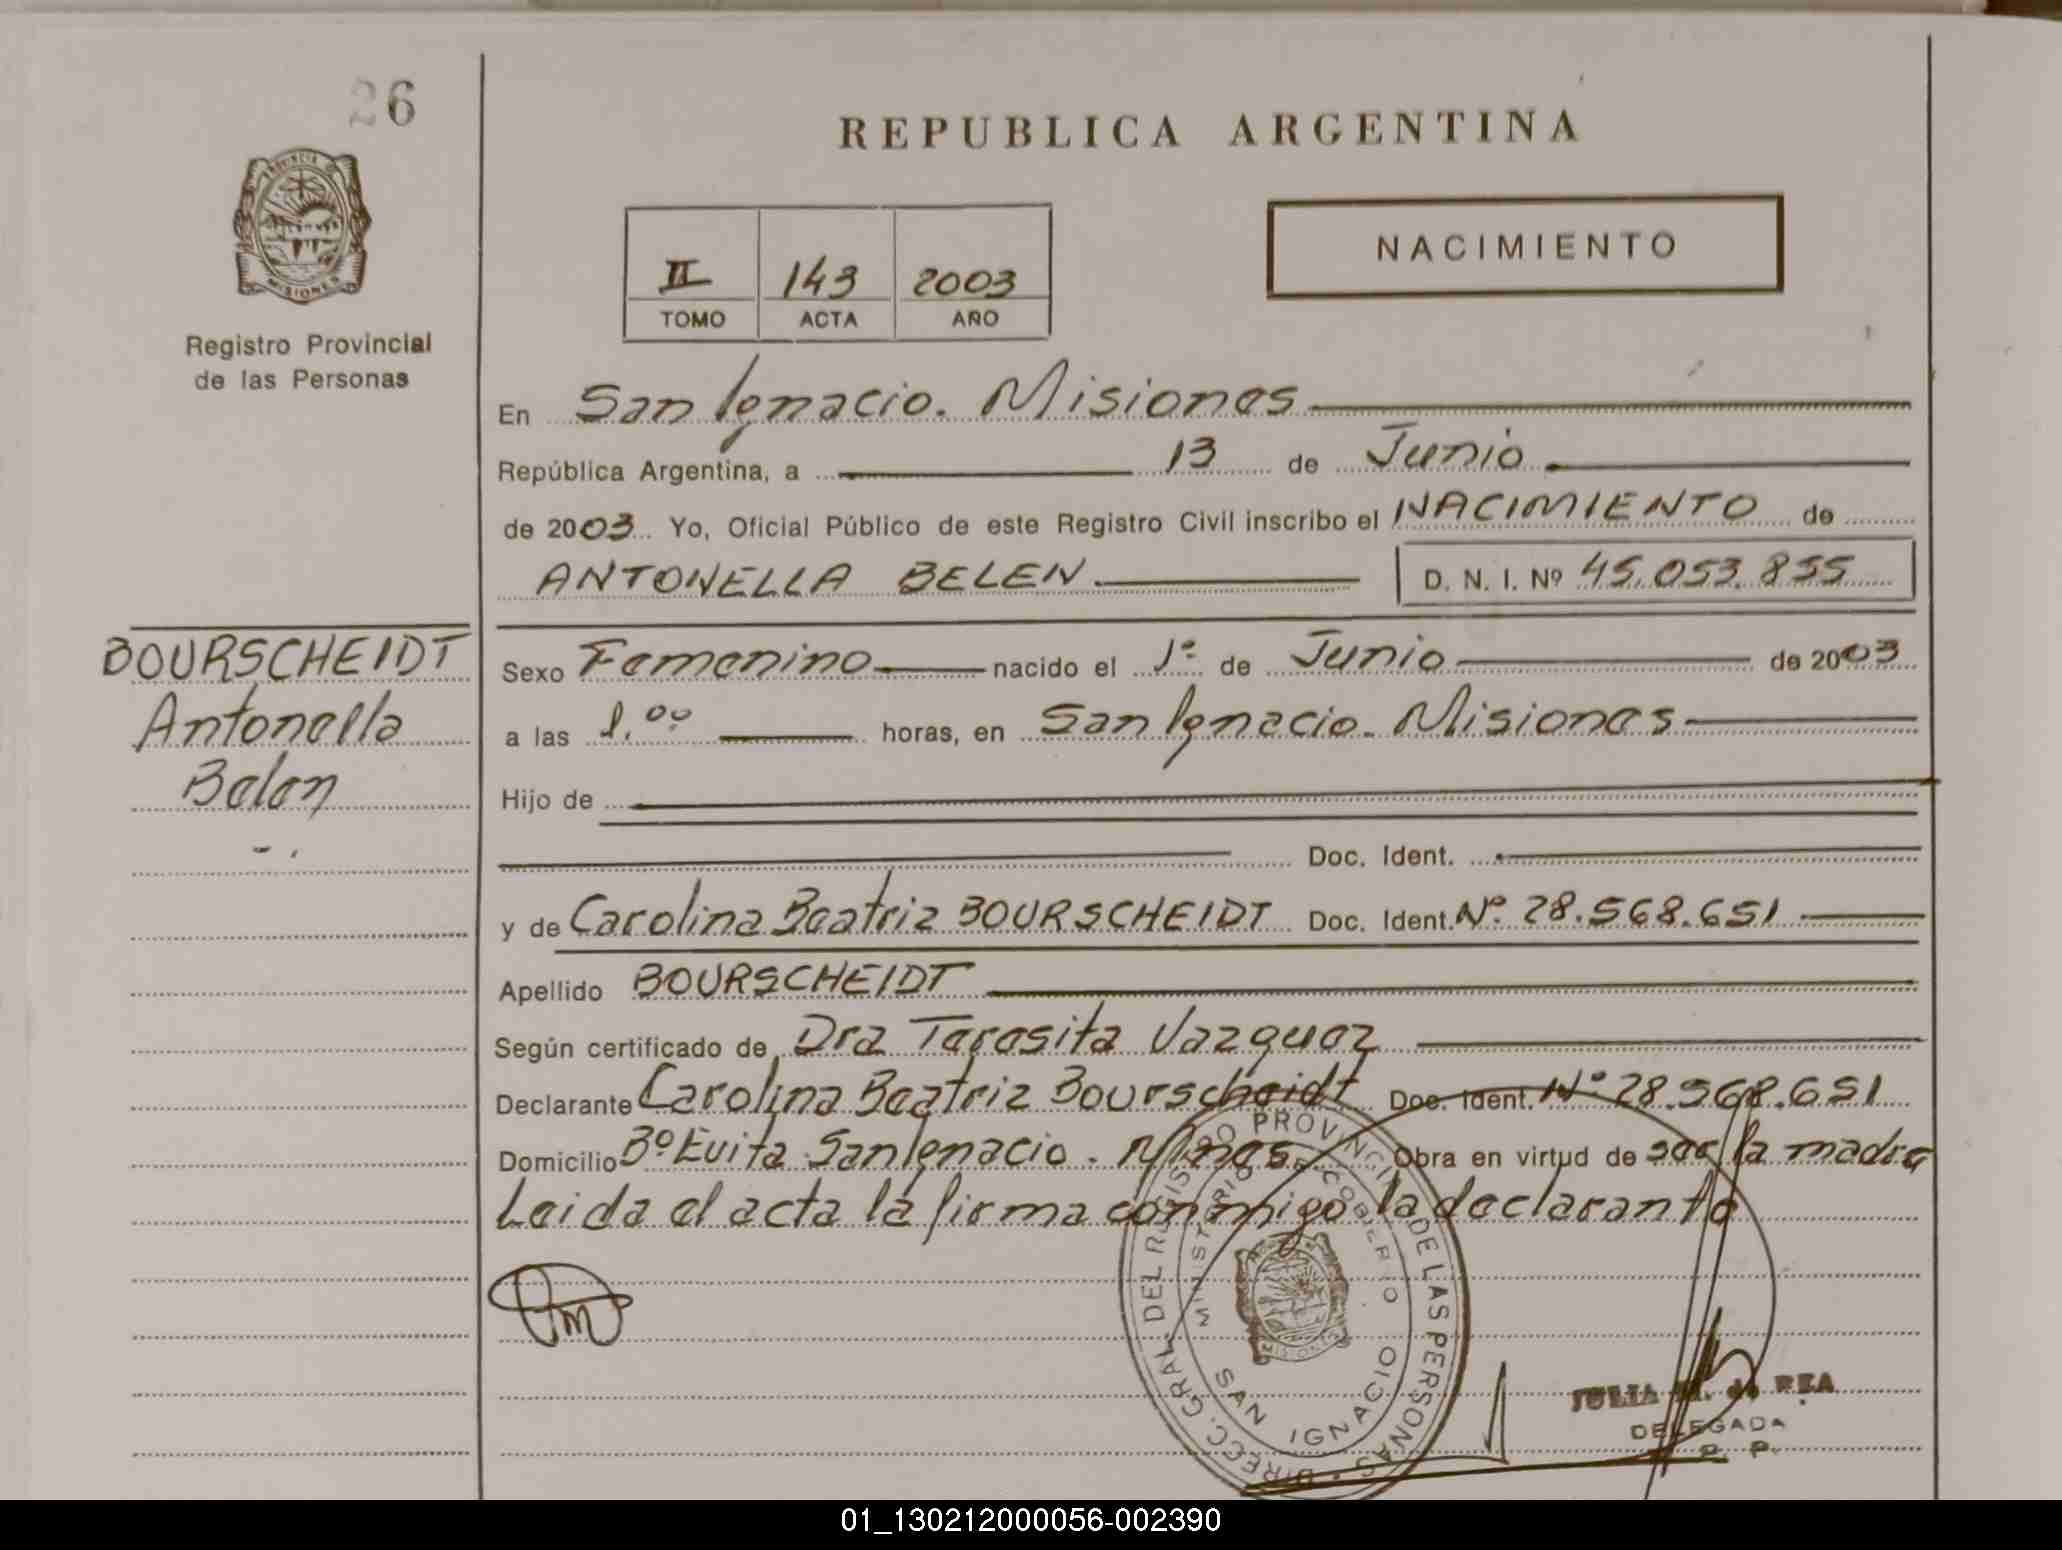 26
REPUBLICA ARGENTINA
PROVINCIA DE
MISIONES
Registro Provincial
de las Personas
II 143 2003
TOMO ACTA AÑO
NACIMIENTO
En San Ignacio. Misiones
República Argentina, a 13 de Junio
de 2003 Yo, Oficial Público de este Registro Civil inscribo el NACIMIENTO de
ANTONELLA BELEN D. N. I. Nº 45.053.855
BOURSCHEIDT
Antonella
Belen
Sexo Femenino nacido el 1º de Junio de 2003
a las 1.00 horas, en San Ignacio. Misiones
Hijo de
Doc. Ident.
y de Carolina Beatriz BOURSCHEIDT Doc. Ident. Nº 28.568.651
Apellido BOURSCHEIDT
Según certificado de Dra Teresita Vazquez
Declarante Carolina Beatriz Bourscheidt Doc. Ident. Nº 28.568.651
Domicilio Bº Evita San Ignacio. Mnes Obra en virtud de ser la madre
Leida el acta la firma conmigo la declarante
DIRECC. GRAL DEL REGISTRO PROVINCIAL DE LAS PERSONAS
MINISTERIO DE GOBIERNO
MISIONES
SAN IGNACIO
JULIA de REA
DELEGADA
R. P.
01_130212000056-002390